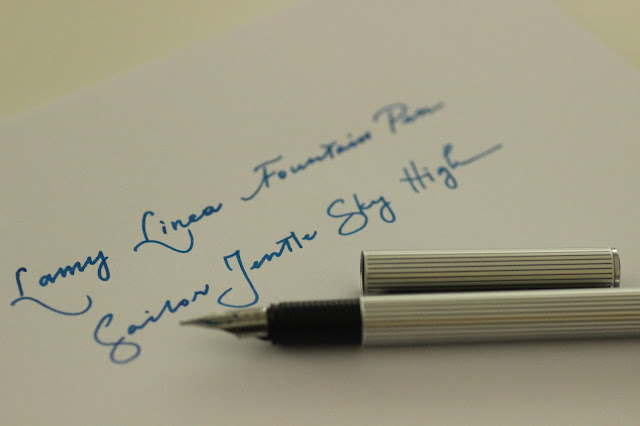 Lamy Linea Fountain Pen
Sailor Jentle Sky High